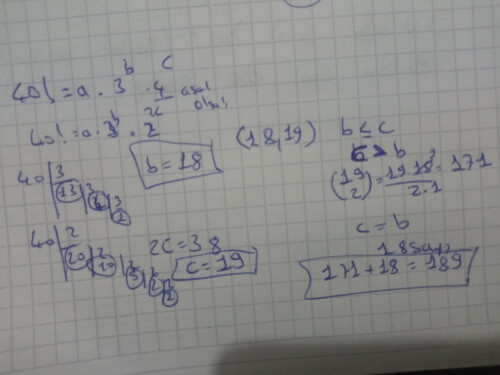 40! = a . 3^b . 4^c asal olsa
2c
40! = a . 3^b . 2
b = 18
(18,19)
40 | 3
13 | 3
4 | 3
1
40 | 2
20 | 2
10 | 2
5 | 2
2 | 2
1
2c = 38
c = 19
b ≤ c
c > b
(19 2) = 19.18 / 2.1 = 171
c = b
18 sayı
171 + 18 = 189